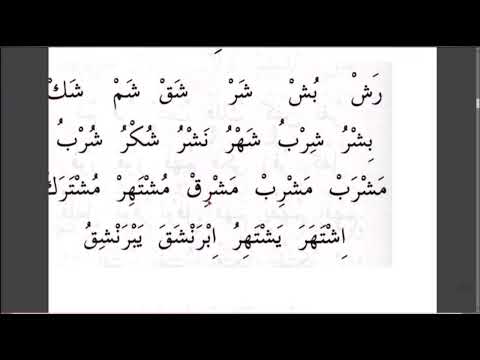 رَشْ بُشْ شَرْ شَقْ شَمْ شَكْ
بِشْرُ شِرْبُ شَهْرُ نَشْرُ شُكْرُ شُرْبُ
مَشْرَبْ مَشْرِبْ مَشْرِقْ مُشْتَهِرْ مُشْتَرَكْ
اِشْتَهَرَ يَشْتَهِرُ اِبْرَنْشَقَ يَبْرَنْشِقُ